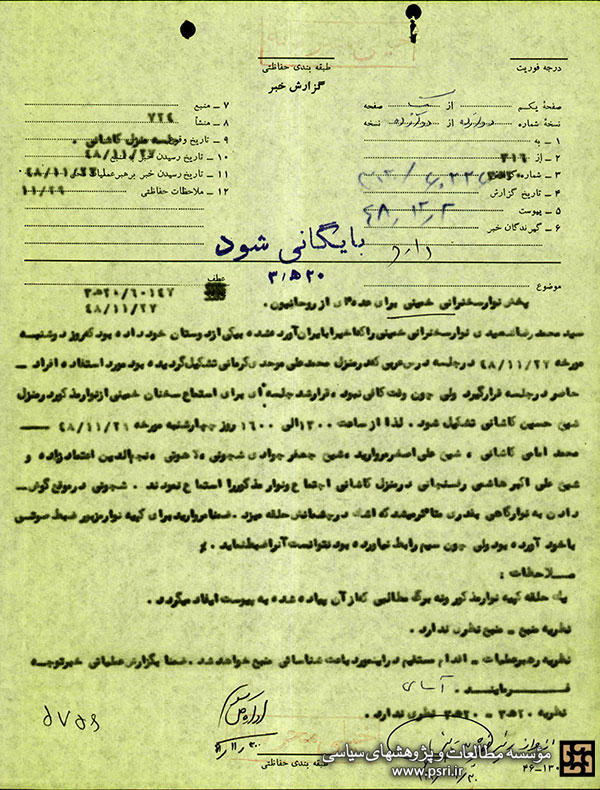 درجه فوریت
طبقه بندی حفاظتی
گزارش خبر
صفحهٔ یکم از یک صفحه
نسخهٔ شماره از نسخه
۱ ـ به
۲ ـ از ۳۱۶
۳ ـ شماره
۴ ـ تاریخ گزارش
۵ ـ پیوست
۶ ـ گیرندگان خبر
دارد
۷ ـ منبع
۸ ـ منشأ ۷۲۴
۹ ـ تاریخ وقوع جلسه منزل کاشانی .
۱۰ ـ تاریخ رسیدن خبر
۱۱ ـ تاریخ رسیدن خبر برهبر عملیات
۱۲ ـ ملاحظات حفاظتی
بایگانی شود
۲۰ه۳
موضوع
عطف
۲۰ه۳/۶۰۱۴۷
۴۸/۱۱/۲۷
پخش نوار سخنرانی خمینی برای عده‌ای از روحانیون .
سید محمد رضا سعیدی نوار سخنرانی خمینی را که اخیرا بایران آورده شده بیکی از دوستان خود داده بود که روز دوشنبه
مورخه ۴۸/۱۱/۲۷ در جلسه درس عربی که در منزل محمد علی موحدی کرمانی تشکیل گردیده بود مورد استفاده افراد ـ
حاضر در جلسه قرار گیرد ولی چون وقت کافی نبود ، قرار شد جلسه‌ای برای استماع سخنان خمینی از نوار مذکور در منزل
شیخ حسین کاشانی تشکیل شود . لذا از ساعت ۱۳۰۰ الی ۱۶۰۰ روز چهارشنبه مورخه
محمد امامی کاشانی ، شیخ علی اصغر مروارید ، شیخ جعفر جوادی شجونی ، لاهوتی ، نجم الدین اعتمادزاده و
شیخ علی اکبر هاشمی رفسنجانی در منزل کاشانی اجتماع و نوار مذکور را استماع نمودند . شجونی در موقع گوش ـ
دادن به نوار گاهی بقدری متاثر میشد که اشک در چشمانش حلقه میزد . ضمنا مروارید برای کپیه نوار مزبور ضبط صوتی
با خود آورده بود ولی چون سیم رابط نیاورده بود نتوانست آنرا ضبط نماید .
ملاحظات :
یک حلقه کپیه نوار مذکور و نه برگ مطالبی که از آن پیاده شده به پیوست ایفاد میگردد .
نظریه منبع ـ منبع نظری ندارد .
نظریه رهبر عملیات ـ اقدام مستقیم در اینمورد باعث شناسائی منبع خواهد شد . ضمنا بگزارش عملیاتی خبر توجه
فرمایند .
نظریه ۲۰ه۳ ـ ۲۰ه۳ نظری ندارد .
اداره کل سوم
طبقه بندی حفاظتی
۴۶-۱۳۰
موسسه مطالعات و پژوهشهای سیاسی
www.psri.ir